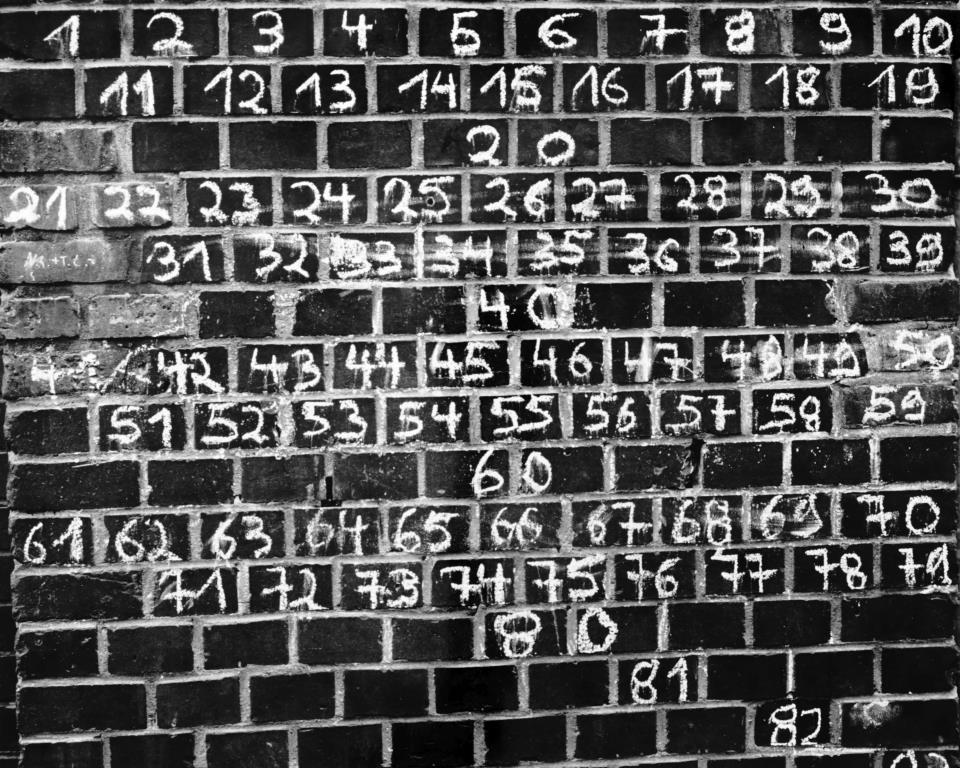 1 2 3 4 5 6 7 8 9 10
11 12 13 14 15 16 17 18 19
20
21 22 23 24 25 26 27 28 29 30
31 32 33 34 35 36 37 38 39
40
42 43 44 45 46 47 48 49 50
51 52 53 54 55 56 57 58 59
60
61 62 63 64 65 66 67 68 69 70
71 72 73 74 75 76 77 78 79
80
81
82